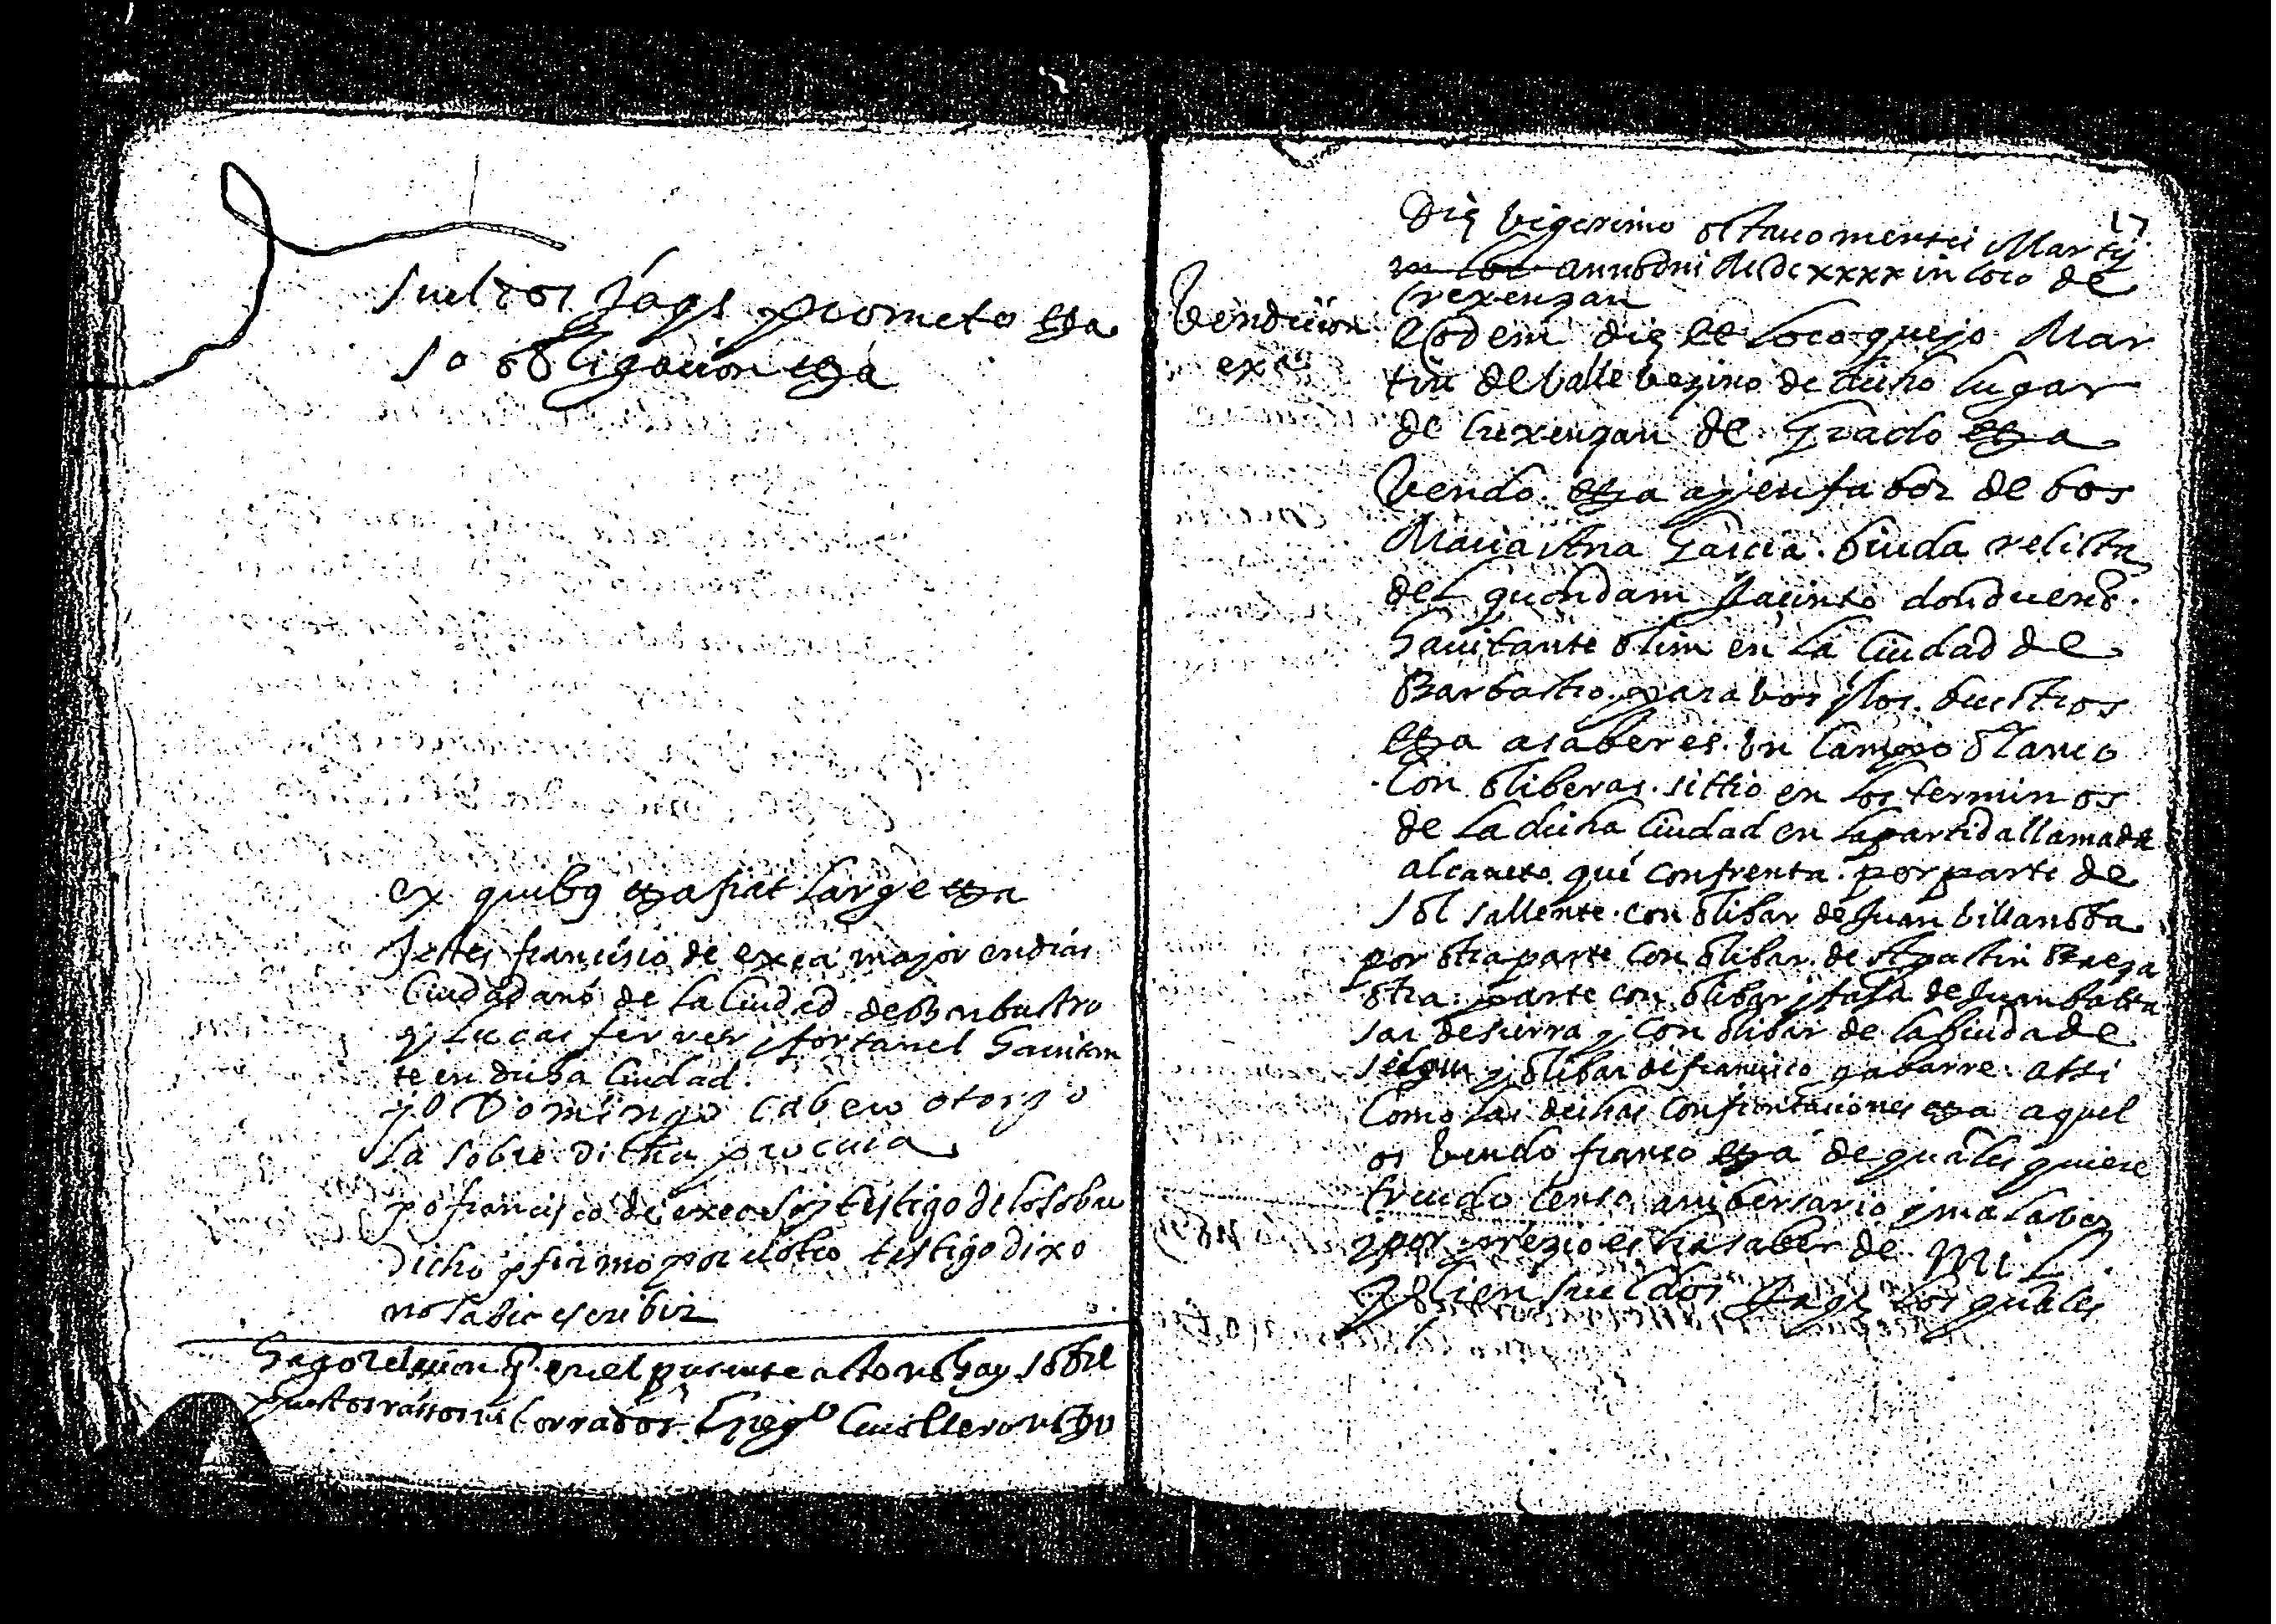 sueldos jaqs prometo etza
so obligacion etza
ex quibus etza fiat large etza
Testes francisco de exea mayor en dias
Ciudadano de la Ciudad de Barbastro
y Lucas ferrer y fortanel Hauitan
te en dicha Ciudad.
yo Domingo Cabero otorgo
la sobre dicha procura
yo francisco de exea soy testigo de lo sobre
dicho y firmo por el otro testigo dixo
no sabia escribir
Hago relacion q en el presente acto no hay sobre
puestos rassos ni borrados
17
Die bigessimo octauo mensis Martij
anno dni M dc xxxx in loco de
Crexenzan
Vendicion
exa
Eodem die et loco que yo Mar
tin del valle vezino de dicho lugar
de Crexenzan de Grado etza
Vendo etza a y en fabor de bos
Maria Ana Garcia biuda relicta
del quondam Jacinto dondueno
Hauitante olim en la Ciudad de
Barbastro para bos y los buestros
etza a saber es un Campo blanco
Con oliberas sittio en los terminos
de la dicha Ciudad en la partida llamada
alcaneto que confrenta por parte de
sol sallente con olibar de Juan billanoba
por otra parte con olibar de Agustin
otra parte con olibar y faja de Juan balta
sar de sierra y con olibar de la biuda de
y olibar de francisco gabarre assi
Como las dichas confrontaciones etza aquel
os bendo franco etza de quales quiere
treudo censo anibersario y mala boz
y por precio es a saber de Mil
y cien sueldos Jaqs los quales